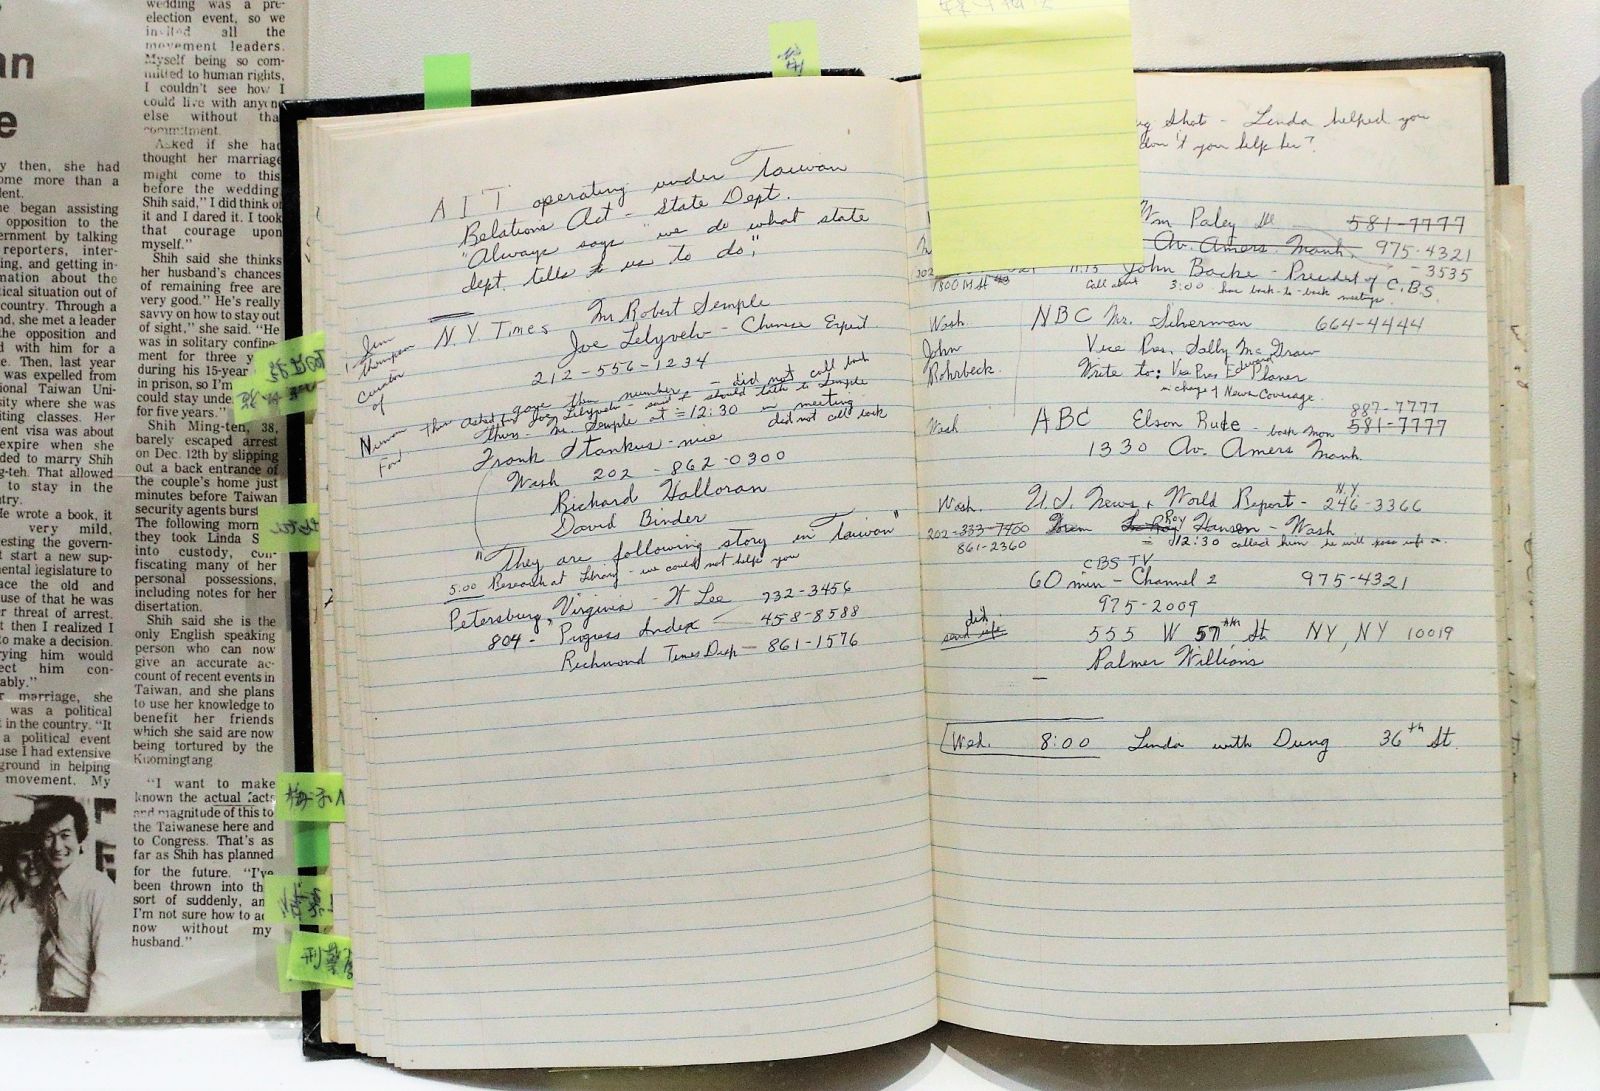 an
e
y then, she had
ome more than a
ent.
e began assisting
opposition to the
ernment by talking
reporters, inter-
ing, and getting in-
mation about the
tical situation out of
country. Through a
nd, she met a leader
the opposition and
d with him for a
e. Then, last year
was expelled from
ional Taiwan Uni-
sity where she was
iting classes. Her
ent visa was about
expire when she
ded to marry Shih
g-teh. That allowed
to stay in the
ntry.
He wrote a book, it
very mild,
esting the govern-
t start a new sup-
mental legislature to
ace the old and
use of that he was
r threat of arrest.
t then I realized I
to make a decision.
rying him would
ect him con-
ably."
r marriage, she
was a political
t in the country. "It
a political event
use I had extensive
ground in helping
movement. My
wedding was a pre-
election event, so we
invited all the
movement leaders.
Myself being so com-
mitted to human rights,
I couldn't see how I
could live with anyone
else without that
commitment.
Asked if she had
thought her marriage
might come to this
before the wedding
Shih said," I did think of
it and I dared it. I took
that courage upon
myself."
Shih said she thinks
her husband's chances
of remaining free are
very good." He's really
savvy on how to stay out
of sight," she said. "He
was in solitary confine-
ment for three y
during his 15-year
in prison, so I'm
could stay unde
for five years."
Shih Ming-teh, 38,
barely escaped arrest
on Dec. 12th by slipping
out a back entrance of
the couple's home just
minutes before Taiwan
security agents burst
The following morn
they took Linda S
into custody, con-
fiscating many of her
personal possessions,
including notes for her
disertation.
Shih said she is the
only English speaking
person who can now
give an accurate ac-
count of recent events in
Taiwan, and she plans
to use her knowledge to
benefit her friends
which she said are now
being tortured by the
Kuomingtang
"I want to make
known the actual facts
and magnitude of this to
the Taiwanese here and
to Congress. That's as
far as Shih has planned
for the future. "I've
been thrown into th
sort of suddenly, an
I'm not sure how to ac
now without my
husband."
梅子
刑警
AIT operating under Taiwan
Relations Act - State Dept.
"Always says "we do what state
dept. tells us to do,"
N.Y. Times Mr Robert Semple
Joe Lelyveld - Chinese Expert
212-556-1234
Jim
Thompson
cousin
of
Numan
Ford
gave them number, - did not call back
Joe Lelyveld - said I should talk to Semple
then - Mr. Semple at =12:30 in meeting
did not call back
Frank Stankus - nice
Wash 202-862-0300
Richard Halloran
David Binder
"They are following story in Taiwan"
5:00 Research at Library - we could not help you
Petersburg, Virginia - H Lee 732-3456
804- Progress Index - 458-8588
Richmond Times Disp - 861-1576
Shots - Linda helped you
don't you help her?
Wm Paley 581-7777
Av. Amers. Manh. 975-4321
- 3535
1800 M St 11:15 John Backe - President of C.B.S.
Call about 3:00 has back-to-back meetings.
Wash. NBC Mr. Silverman 664-4444
John Vice Pres. Sally Mc Graw
Rohrbeck. Write to: Vice Pres Edward Planer
in charge of News Coverage
887-7777
Wash ABC Elson Rude - back Mon 581-7777
1330 Av. Amers Manh.
Wash. U.S. News & World Report - N.Y. 246-3366
202-333-7400 Roy Hansen - Wash
861-2360 = 12:30 called him he will
CBS TV
60 min - Channel 2 975-4321
975-2009
did
send info 555 W 57th St NY, NY 10019
Palmer Williams
Wed. 8:00 Linda with Dung 36th St.